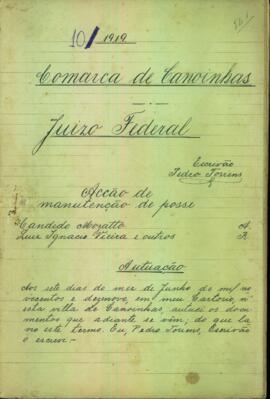 10/1919
Comarca de Canoinhas
Juizo Federal
Escrivão
Pedro Torrens
Acção de
manutenção de posse
Candido Mozatto A.
Luiz Ignacio Vieira e outros R.
Autuação
Aos sete dias do mez de Junho de mil no
vecentos e dezenove, em meu Cartorio, n'
esta villa de Canoinhas, autuei os docu
mentos que adiante se vêm; do que la
vro este termo. Eu, Pedro Torrens, Escrivão
o escrevi.